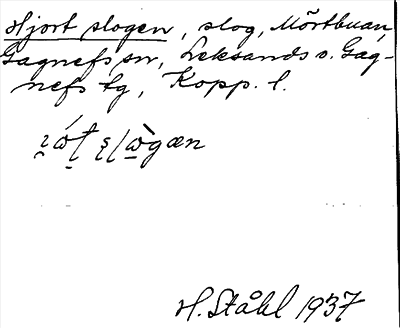 Hjortslogen, slog, Mörtbuan,
Gagnefs sn, Leksands o. Gag-
nefs tg, Kopp. l.
H. Ståhl 1937